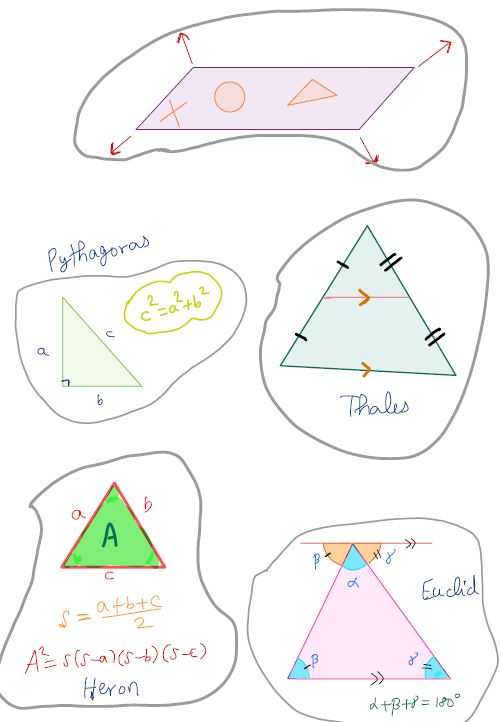 Pythagoras
c²=a²+b²
a
c
b
Thales
a
b
A
c
s = a+b+c/2
A²= s(s-a)(s-b)(s-c)
Heron
β
γ
α
Euclid
β
γ
α+β+γ = 180°